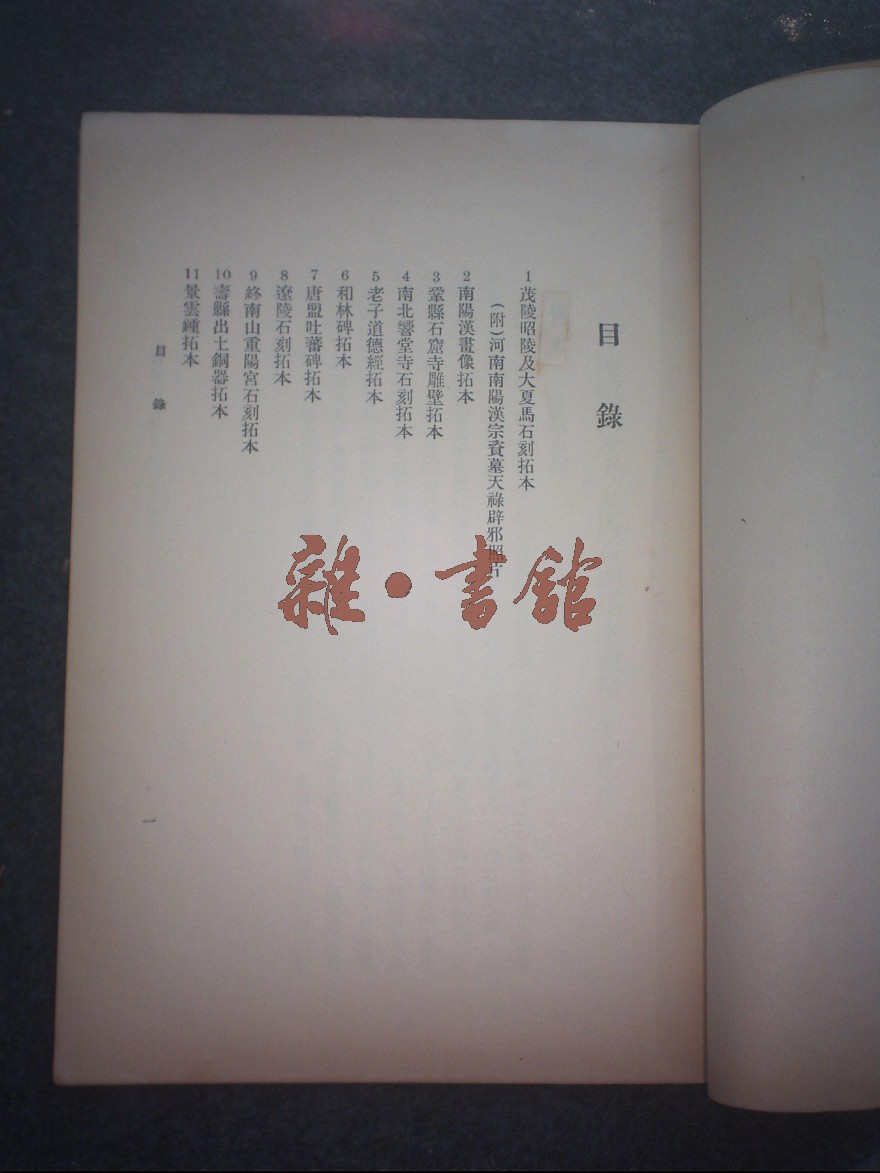 目錄
1茂陵昭陵及大夏馬石刻拓本
(附)河南南陽漢宗資墓天祿辟邪照片
2南陽漢畫像拓本
3鞏縣石窟寺雕壁拓本
4南北響堂寺石刻拓本
5老子道德經拓本
6和林碑拓本
7唐盟吐蕃碑拓本
8遼陵石刻拓本
9終南山重陽宮石刻拓本
10壽縣出土銅器拓本
11景雲鍾拓本
目錄
一
雜·書館